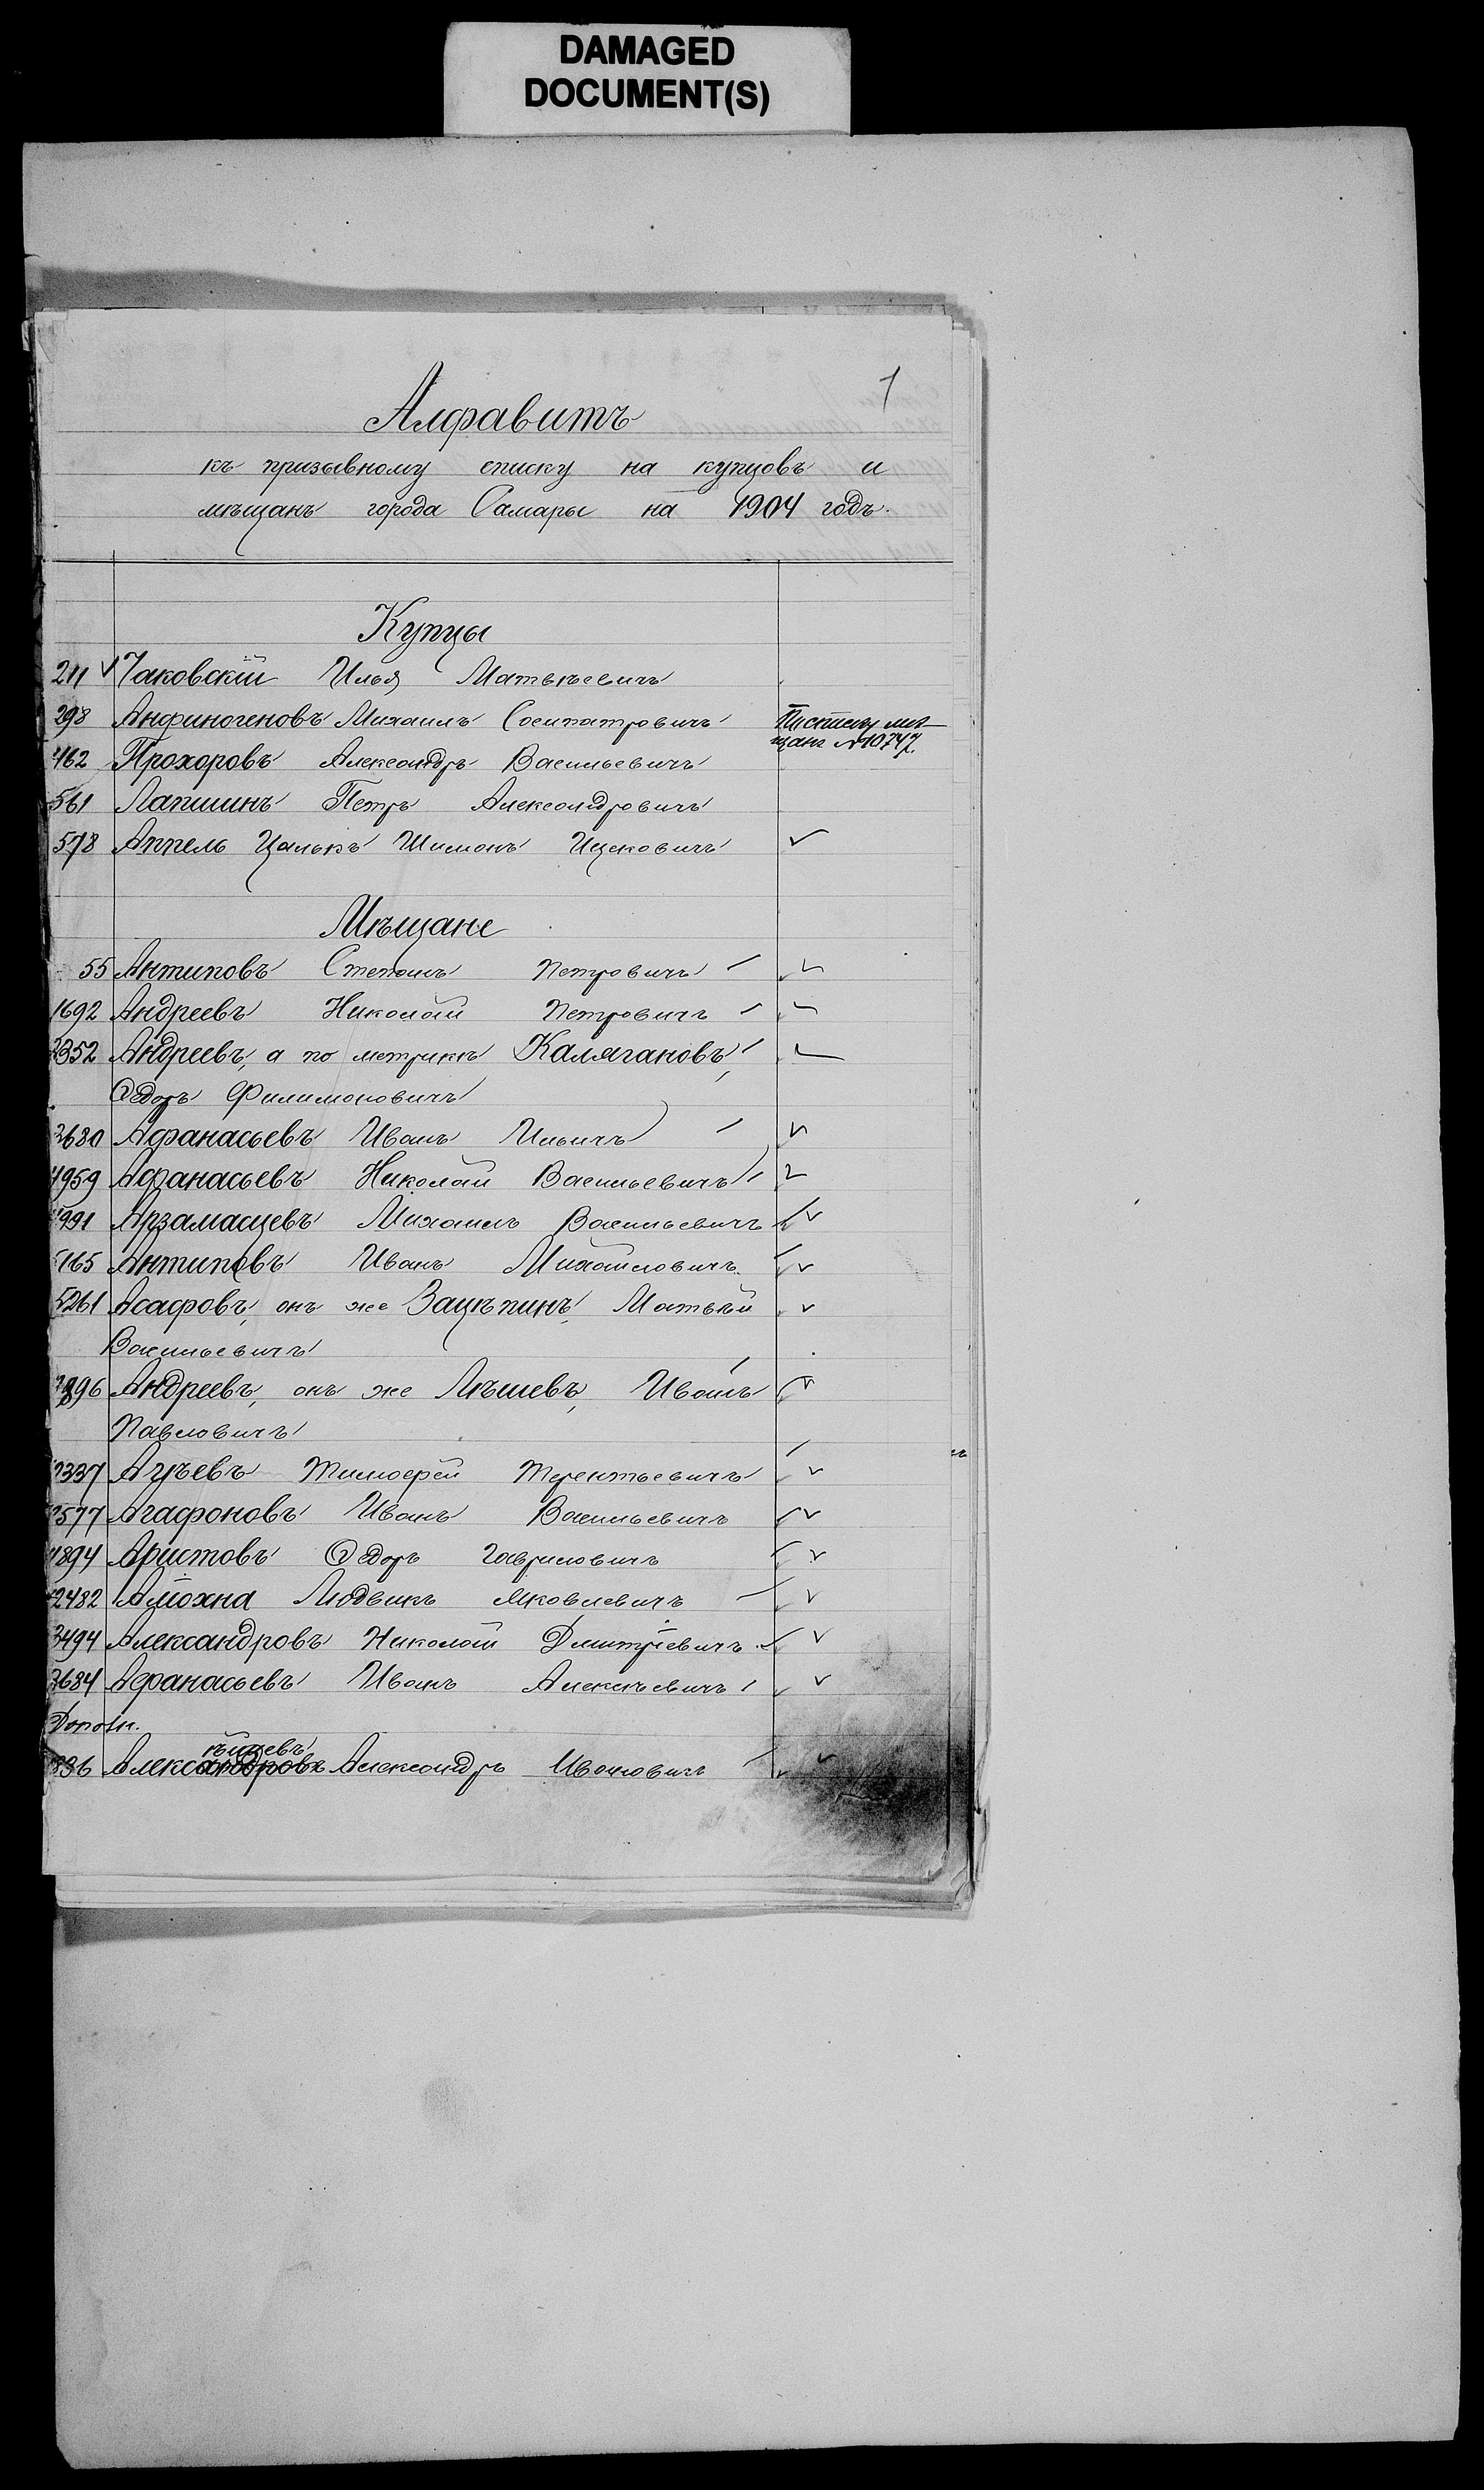 DAMAGED
DOCUMENT(S)
1
Алфавитъ
къ призывному списку на купцовъ и
мѣщанъ города Самары на 1904 годъ.
Купцы
211 Чаковскій Илья Матвѣевичъ
298 Анфиногеновъ Михаилъ Сосипатровичъ
мѣ-
щанъ №10747.
462 Прохоровъ Александръ Васильевичъ
561 Лапшинъ Петръ Александровичъ
578 Аппель Цалькъ Шимонъ Ицковичъ
Мѣщане
55 Антиповъ Степанъ Петровичъ
1692 Андреевъ Николай Петровичъ
2352 Андреевъ, а по метрикѣ Калягановъ,
Ѳедоръ Филимоновичъ
3680 Афанасьевъ Иванъ Ильичъ
4959 Афанасьевъ Николай Васильевичъ
991 Арзамасцевъ Михаилъ Васильевичъ
5165 Антиповъ Иванъ Михайловичъ
5261 Асафовъ, онъ же Зацѣпинъ, Матвѣй
Васильевичъ
896 Андреевъ, онъ же Лѣшевъ, Иванъ
Павловичъ
337 Агѣевъ Тимофей Терентьевичъ
577 Агафоновъ Иванъ Васильевичъ
894 Аристовъ Ѳедоръ Гавриловичъ
2482 Людвикъ Яковлевичъ
3494 Александровъ Николай Дмитріевичъ
3684 Афанасьевъ Иванъ Алексѣевичъ
Дополн.
ѣйцевъ
896 Александровъ Александръ Ивановичъ